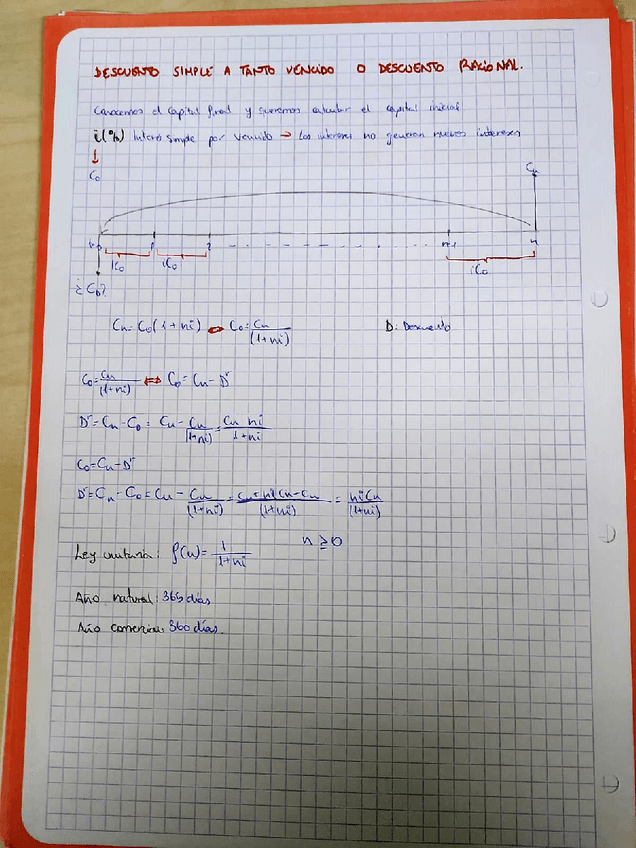 DESCUENTO SIMPLE A TANTO VENCIDO O DESCUENTO RACIONAL.
Conocemos el capital final y queremos calcular el capital inicial
i(%) Interés simple por vencido → Los intereses no generan nuevos intereses
↓
C₀
Cn
0 1 2 - - - - - n-1 n
iC₀ iC₀ iC₀
¿C₀?
Cn = C₀(1+ni) ⇔ C₀ = Cn/(1+ni) D: Descuento
C₀ = Cn/(1+ni) ⇔ C₀ = Cn - Dʳ
Dʳ = Cn - C₀ = Cn - Cn/(1+ni) = Cn ni/1+ni
C₀ = Cn - Dʳ
Dʳ = Cn - C₀ = Cn - Cn/(1+ni) = Cn + niCn - Cn/(1+ni) = niCn/(1+ni)
Ley unitaria: f(n) = 1/1+ni n ≥ 0
Año natural: 365 días
Año comercial: 360 días.